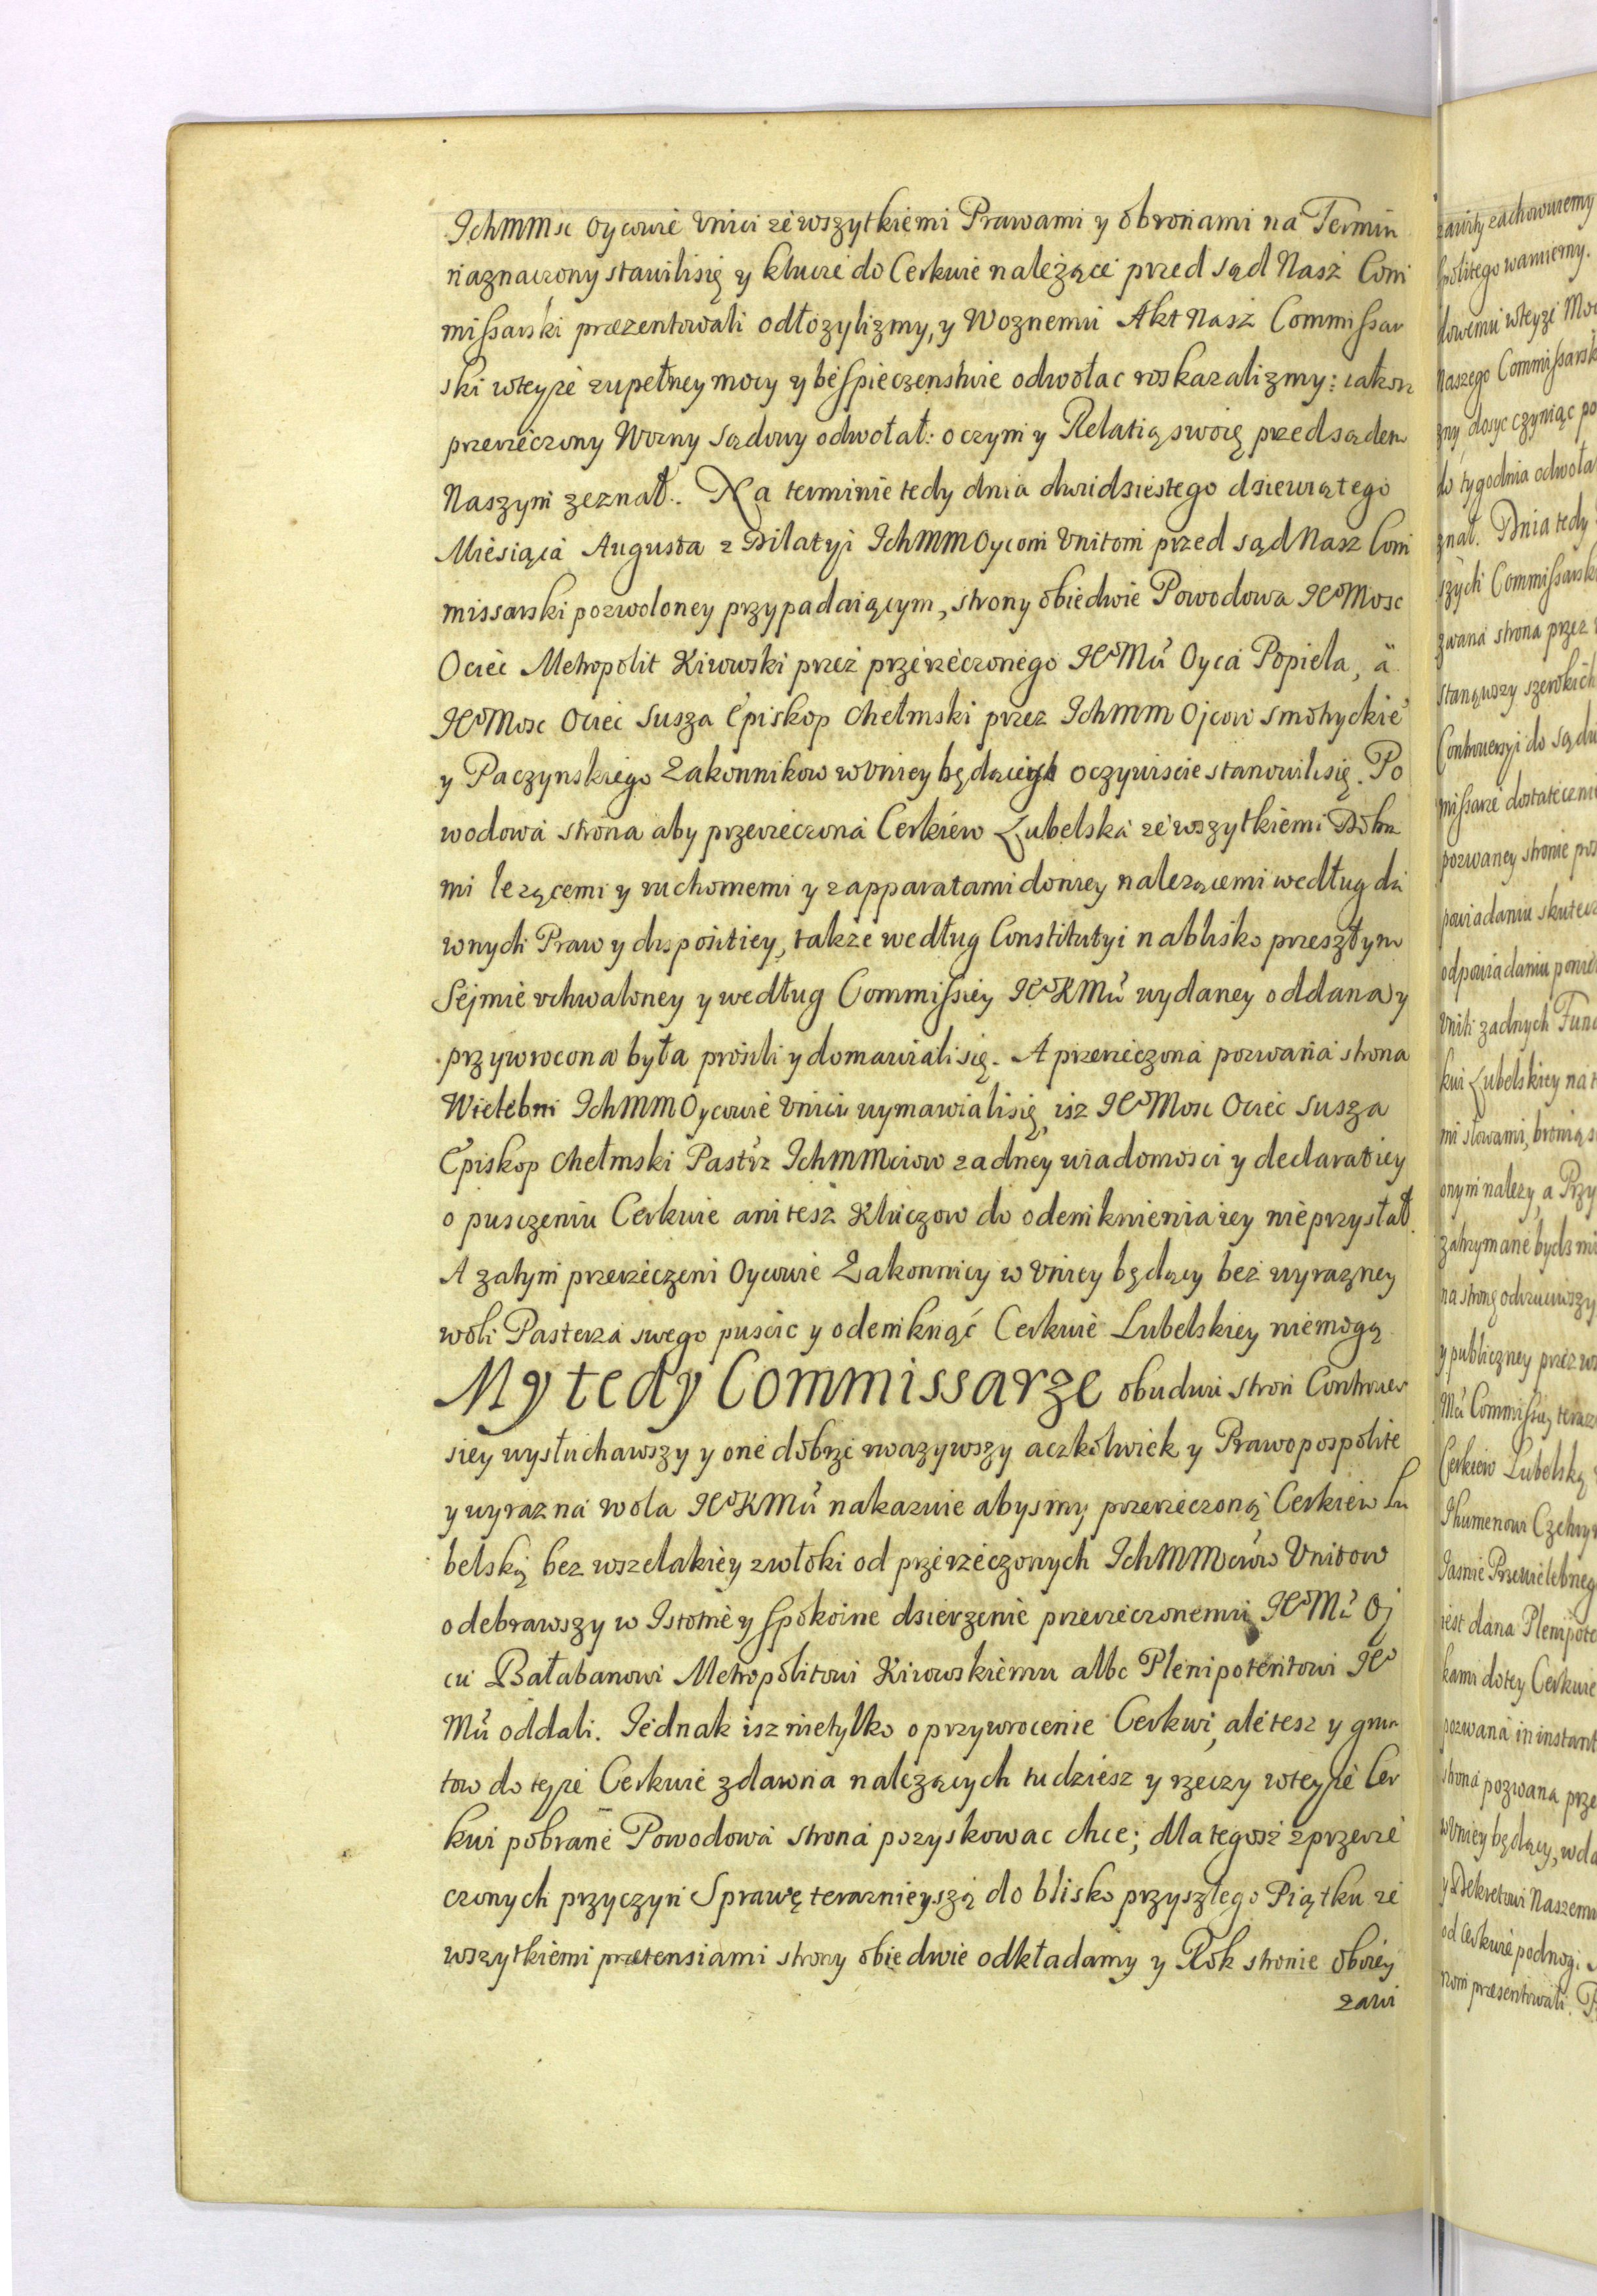 Ichmmsc Oycowie Vnici ze wszytkiemi Prawami y obronami na Termin
naznaczony stawilisię y klucze do Cerkwie należące przed sąd Nasz Com
missarski præzentowali odłozylizmy, y Woznemu Akt Nasz Commissar
ski wteyze zupełney mocy y bespieczenstwie odwołac roskazalizmy: iakosz
przerzeczony Wozny Sądowy odwołał: o czym y Relatią swoię przed sądem
Naszym zeznał. Na terminie tedy dnia dwidziestego dsiewiątego
Miesiąca Augusta z Dilatyi Ichmm Oycom Vnitom przed sąd Nasz Com
missarski pozwoloney przypadaiącym, strony obiedwie Powodowa Ie⁰ Mosc
Ociec Metropolit Kiiowski przez przerzeczonego Ie⁰ Mci Oyca Popiela, a
Ie⁰ Mosc Ociec Susza Episkop Chełmski przez Ichmm Ojcow Smotryckie⁰
y Paczynskiego Zakonnikow w Vniey będących oczywiscie stanowilisię. Po
wodowa strona aby przerzeczona Cerkiew Lubelska ze wszytkiemi Dobra
mi leżącemi y ruchomemi y z apparatami doniey należącemi według da
wnych Praw y dispositiey, także według Constitutyi na blisko przeszłym
Sejmie vchwaloney y według Commissiey Ie⁰ K Mci wydaney oddana y
przywrocona była prosili y domawialisię. A przerzeczona pozwana strona
Wielebni Ichmm Oycowie Vnici wymawialisię, isz Ie⁰ Mosc Ociec Susza
Episkop Chełmski Pastyrz Ichmmciow zadney wiadomosci y declaratiey
o pusczeniu Cerkwie ani tesz Kluczow do odemknienia iey nie przysłał.
A zatym przerzeczeni Oycowie Zakonnicy w Vniey będący bez wyrazney
woli Pasterza swego puscic y odemknąć Cerkwie Lubelskiey niemogą
My tedy Commissarze obudwu stron Controuer
siey wysłuchawszy y one dobrze vwazywszy aczkolwiek y Prawo pospolite
y wyrazna wola Ie⁰ K Mci nakazuie abysmy przerzeczoną Cerkiew Lu
belską bez wszelakiey zwłoki od przerzeczonych Ichmmciow Vnitow
odebrawszy w Istotne y spokoine dsierzenie przerzeczonemu Ie⁰ Mci Oj
cu Bałabanowi Metropolitowi Kiiowskiemu albo Plenipotentowi Ie⁰
Mci oddali. Iednak isz nietylko o przywrocenie Cerkwi, ale tesz y grun
tow do teyze Cerkwie zdawna należących tudziesz y rzeczy wteyze Cer
kwi pobrane Powodowa strona pozyskowac chce; dla tegosz z przerze
czonych przyczyn Sprawę teraznieyszą do blisko przyszłego Piątku ze
wszytkiemi prætensiami strony obiedwie odkładamy y Rok stronie oboiey
zawi
zawity zachowuiemy
spolitego waruiemy.
dowemu wteyze Moc
Naszego Commissarsk
zny dosyc czyniąc po
do tygodnia odwoła
znał. Dnia tedy
szych Commissarsk
zwana strona przez
stanąwszy szerokich
Controuersyi do sądu
missarze dostateczni
pozwaney stronie
powiadaniu skutecz
odpowiadaniu
Vniti zadnych Fun
kwi Lubelskiey na
mi słowami, bronią s
onym nalezy, a Przy
zatrzymane bydz ni
na stronę odrzuciwszy
y publiczney przez
Mci Commissiey teraz
Cerkiew Lubelską
Ihumenowi
Iasnie Przewielebneg
iest dana Plenipote
kami do tey Cerkwie
pozwana in instant
strona pozwana prze
w Vniey będący, wda
y Dekretowi Naszemu
od Cerkwie podnogi.
nom præsentowali.